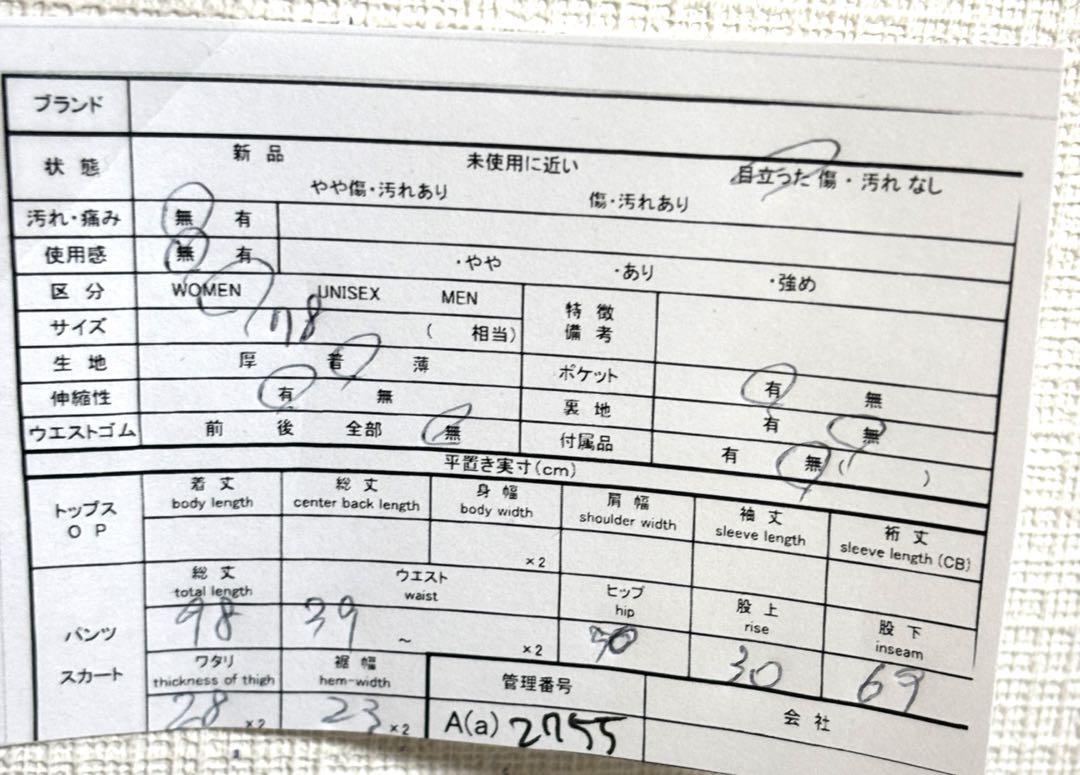 ブランド
状態 新品 未使用に近い 目立った傷・汚れなし
やや傷・汚れあり 傷・汚れあり
汚れ・痛み 無 有
使用感 無 有 ・やや ・あり ・強め
区分 WOMEN UNISEX MEN
サイズ 78 ( 相当)
特徴
備考
生地 厚 普 薄
ポケット 有 無
伸縮性 有 無
裏地 有 無
ウエストゴム 前 後 全部 無
付属品 有 無 ( )
平置き実寸(cm)
トップス
OP
着丈
body length
総丈
center back length
身幅
body width
×2
肩幅
shoulder width
袖丈
sleeve length
裄丈
sleeve length (CB)
パンツ
スカート
総丈
total length
98
ウエスト
waist
39 ~ ×2
ヒップ
hip
股上
rise
30
股下
inseam
69
ワタリ
thickness of thigh
28 ×2
裾幅
hem-width
23 ×2
管理番号
A(a) 2755
会社